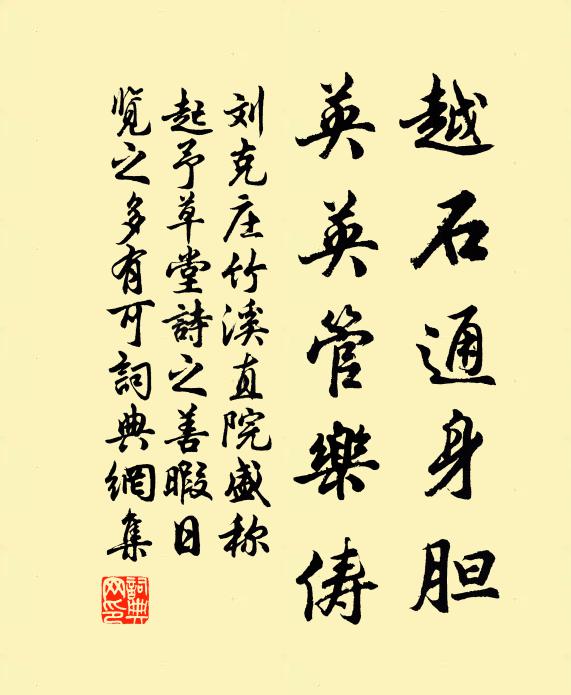 越石通身胆
英英管樂俦
刘克庄竹溪直院盛称
起予草堂詩之善暇日
览之多有可詞典網集
詞典网印